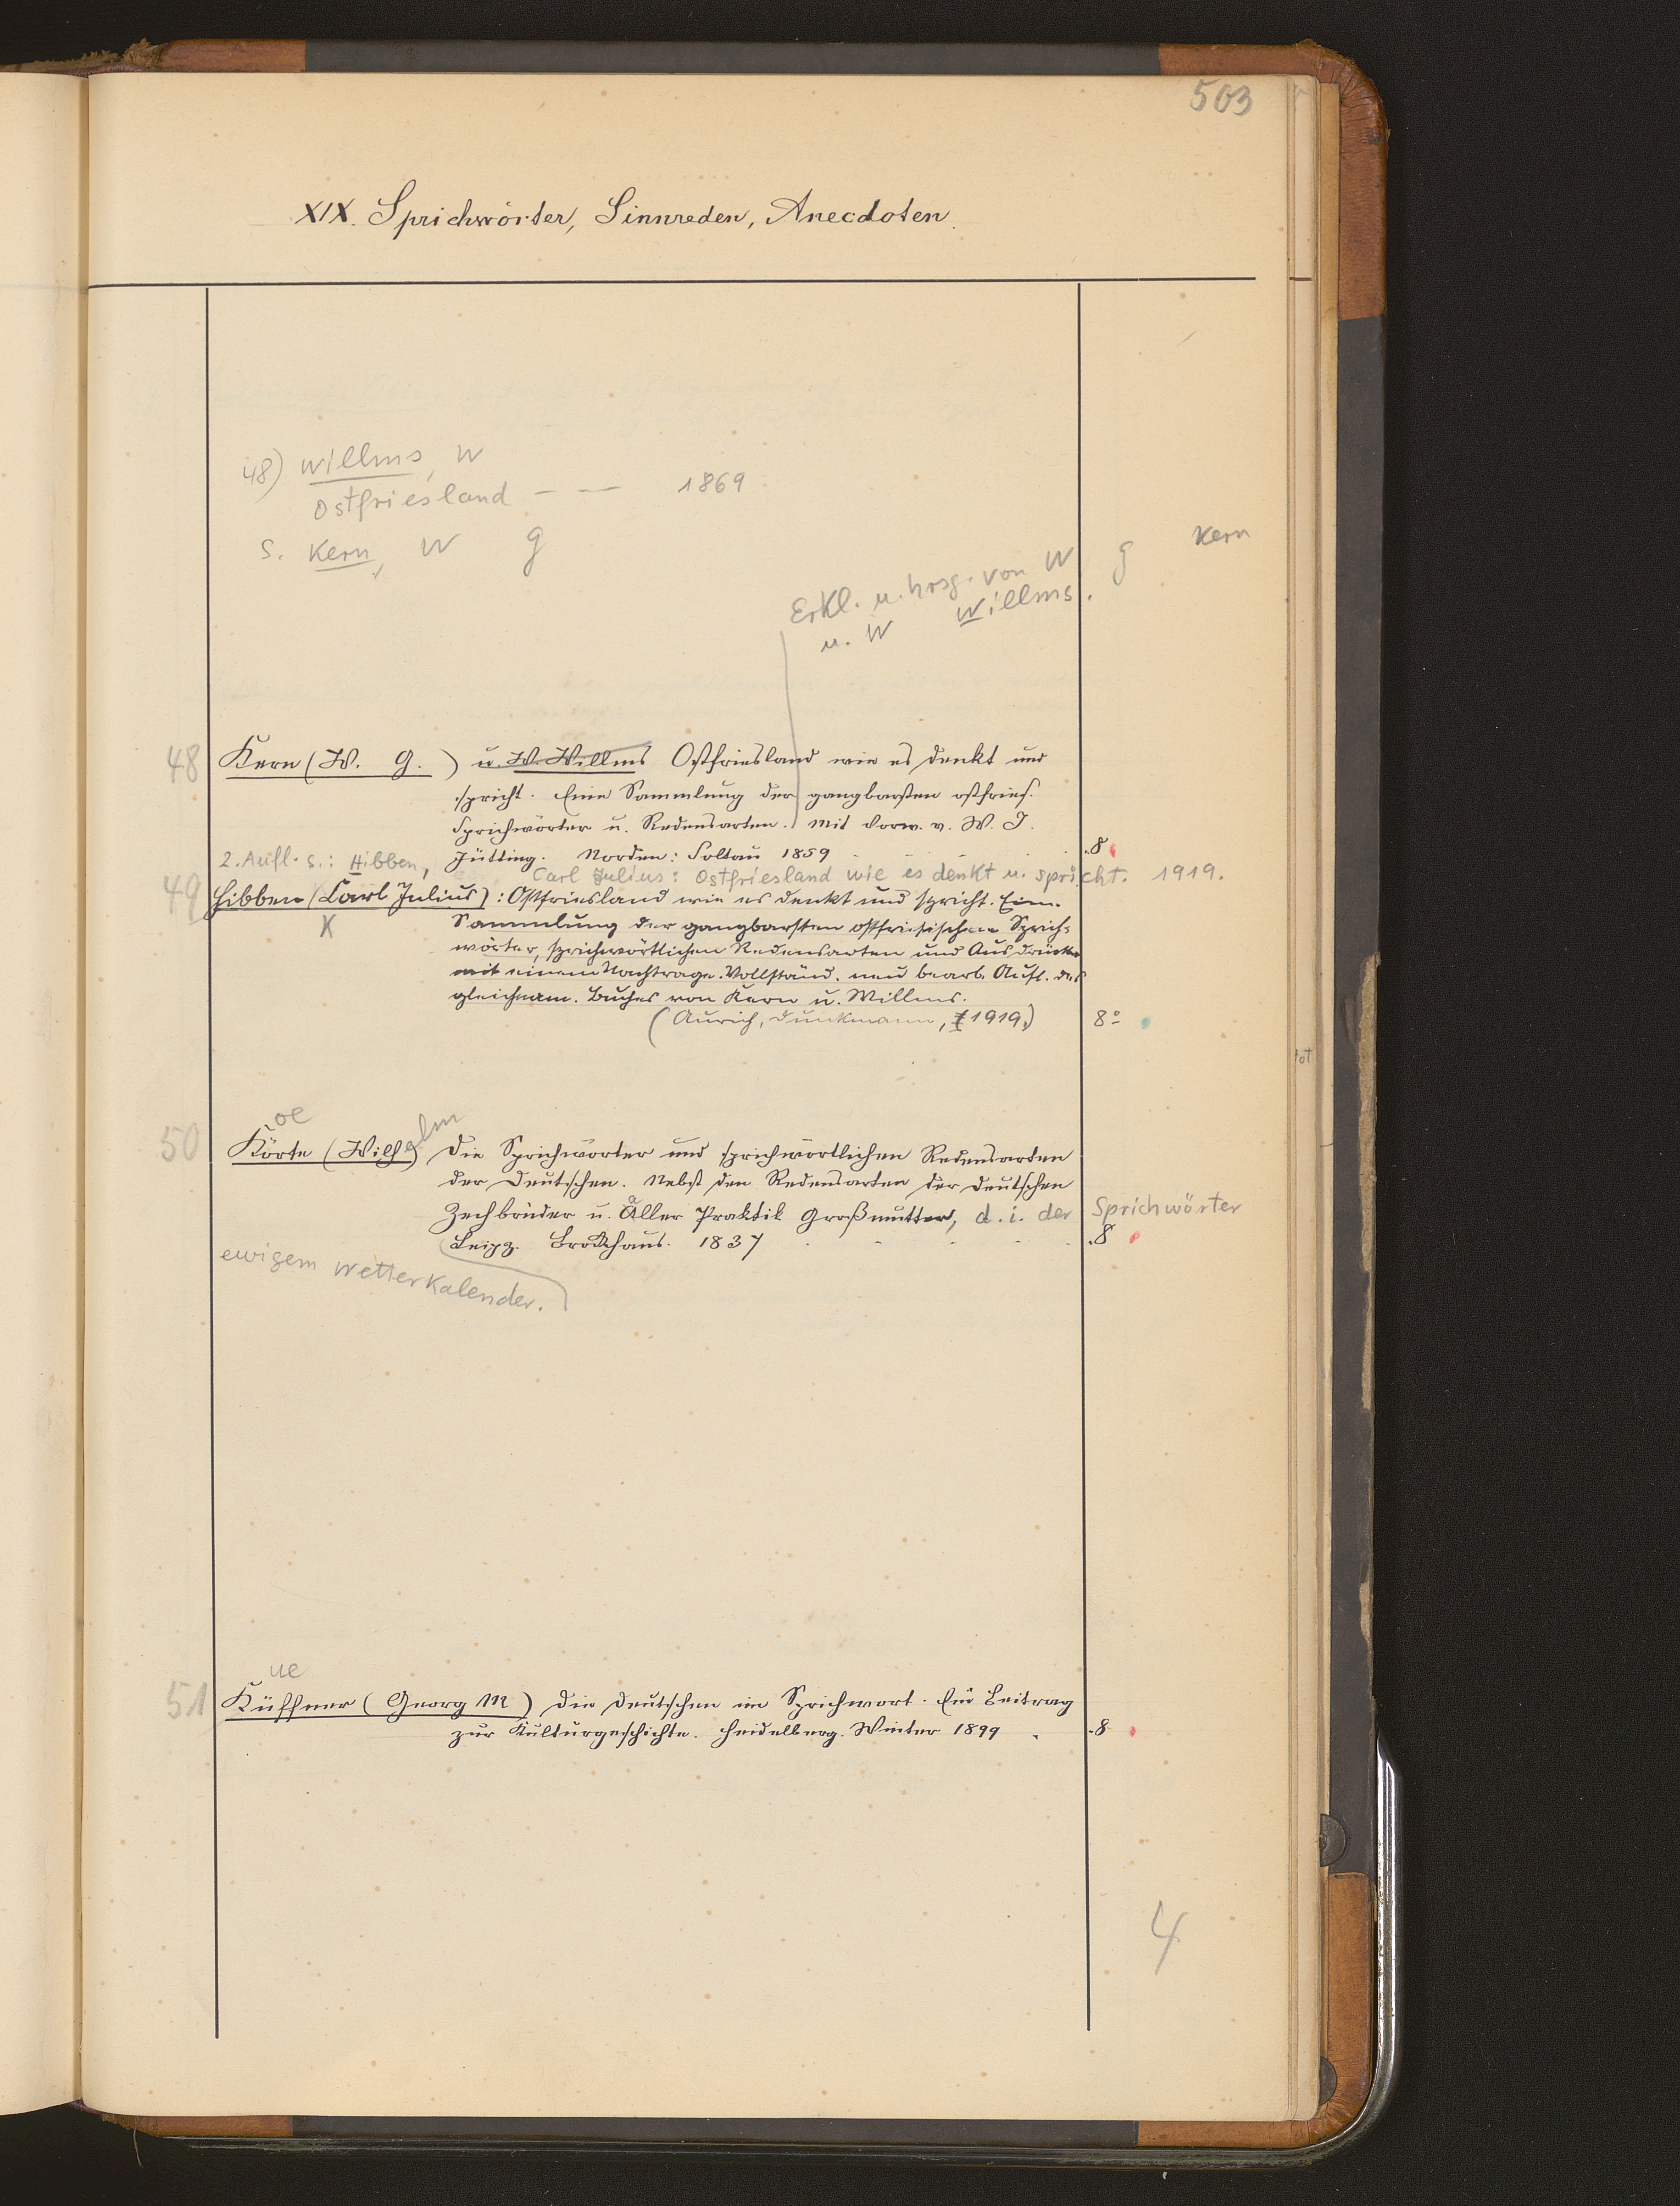 503
XIX. Sprichwörter, Sinnreden, Anecdoten.
48) Willms, W
Ostfriesland - — 1869
s. Kern, W G
Erkl. u. hrsg. von W. G Kern
u. W Willms.
48 Kern (W. G. ) u. W. Willms Ostfriesland wie es denkt und
spricht. Eine Sammlung der gangbarsten ostfries.
Sprichwörter u. Redensarten. Mit Vorw. v. W. J.
Jütting. Norden: Soltau 1859 . . . 8
2. Aufl. s.: Hibben, Carl Julius: Ostfriesland wie es denkt u. spricht. 1919.
49 Hibben (Carl Julius): Ostfriesland wie es denkt und spricht. Eine
K
Sammlung der gangbarsten ostfriesischen Sprich=
wörter, sprichwörtlichen Redensarten und Ausdrücke
mit einem Nachtrage. Vollständ. neu bearb. Aufl. des
gleichnam. Buches von Kern u. Willms.
(Aurich, Dunkmann, 1919.) 8º
oe
50 Körte (Wilhelm) Die Sprichwörter und sprichwörtlichen Redensarten
der Deutschen. Nebst den Redensarten der Deutschen
Zechbrüder u. aller Praktik Großmutter, d. i. der Sprichwörter
Leipz. Brockhaus. 1837 . . . . . 8
ewigem Wetterkalender.
ue
51 Küffner (Georg M ) Die Deutschen im Sprichwort. Ein Beitrag
zur Kulturgeschichte. Heidelberg. Winter 1899 . . 8
4